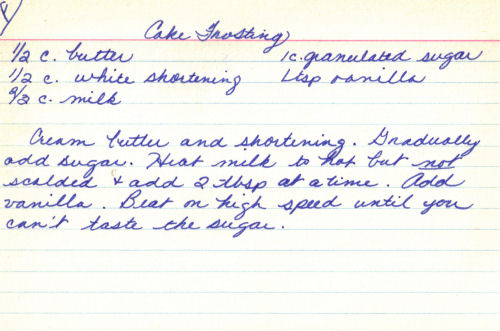 Cake Frosting
1/2 c. butter 1c. granulated sugar
1/2 c. white shortening 1 tsp vanilla
2/3 c. milk
Cream butter and shortening. Gradually
add sugar. Heat milk to hot but not
scalded + add 2 tbsp at a time. Add
vanilla. Beat on high speed until you
can't taste the sugar.